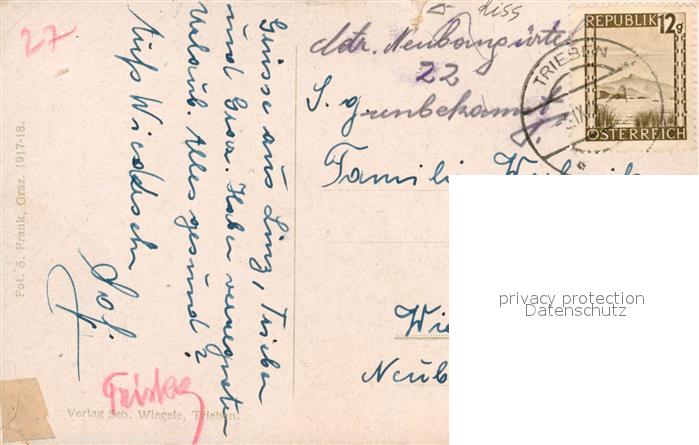 27
Grüsse aus Linz, Trieben
und Graz. Haben verregneten
Urlaub. Alles gesund?
Aufs Wiedersehn
Fot. S. Frank, Graz. 1917-18.
Verlag Seb. Wiegele, Trieben.
Adr. Neubaugürtel
22
Familie
Wie
Neub
REPUBLIK 12g
ÖSTERREICH
TRIEBEN
privacy protection
Datenschutz